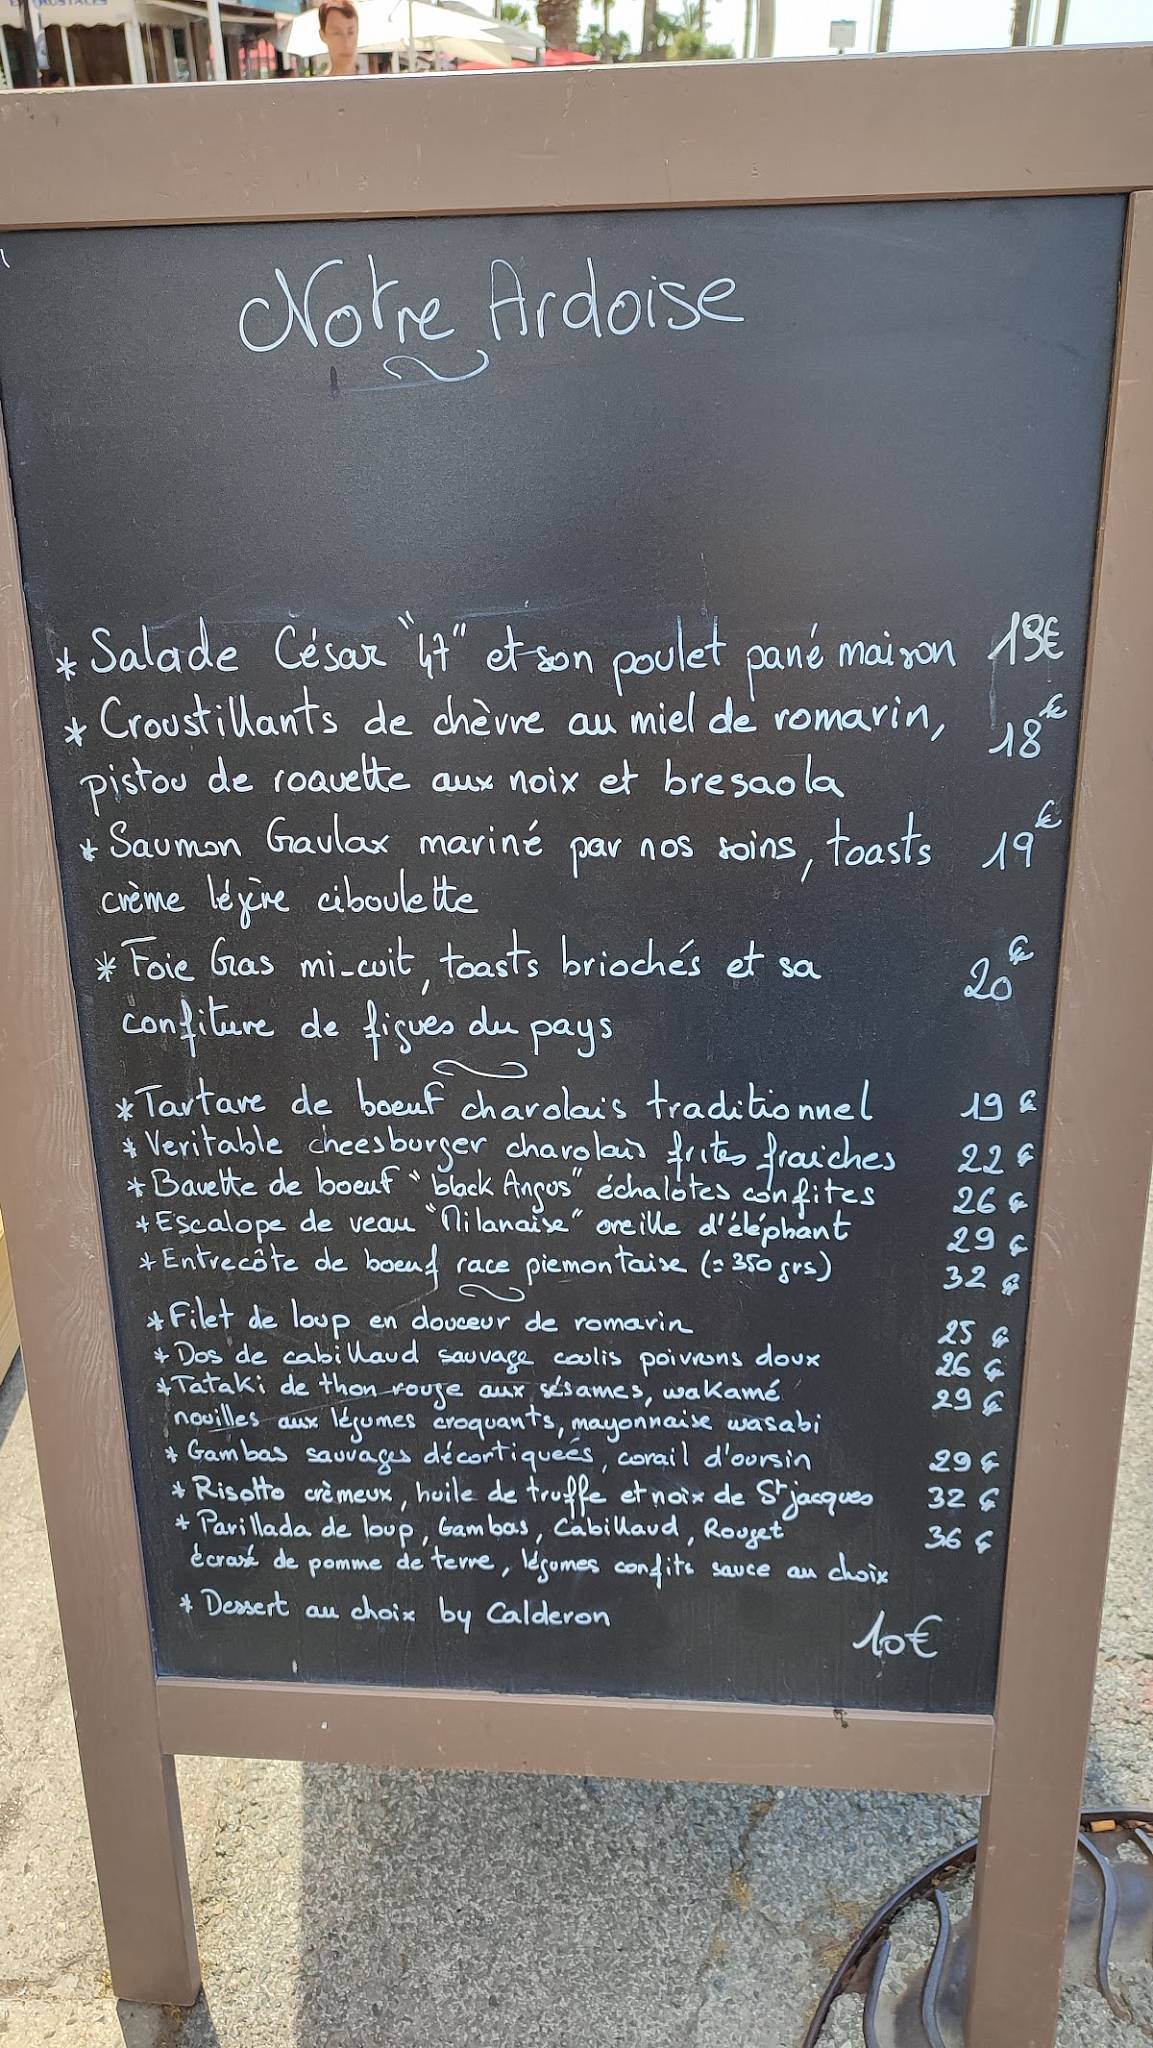 Notre Ardoise
* Salade César "47" et son poulet pané maison 19€
* Croustillants de chèvre au miel de romarin, 18€
pistou de roquette aux noix et bresaola
* Saumon Gavlax mariné par nos soins, toasts 19€
crème légère ciboulette
* Foie Gras mi-cuit, toasts briochés et sa 20€
confiture de figues du pays
* Tartare de boeuf charolais traditionnel 19€
* Veritable cheesburger charolais frites fraiches 22€
* Bavette de boeuf "black Angus" échalotes confites 26€
* Escalope de veau "Milanaise" oreille d'éléphant 29€
* Entrecôte de boeuf race piemontaise (= 350 grs) 32€
* Filet de loup en douceur de romarin 25€
* Dos de cabillaud sauvage coulis poivrons doux 26€
* Tataki de thon rouge aux sésames, wakamé 29€
nouilles aux légumes croquants, mayonnaise wasabi
* Gambas sauvages décortiqueés, corail d'oursin 29€
* Risotto crèmeux, huile de truffe et noix de St jacques 32€
* Parillada de loup, Gambas, Cabillaud, Rouget 36€
écrasé de pomme de terre, légumes confits sauce au choix
* Dessert au choix by Calderon 10€